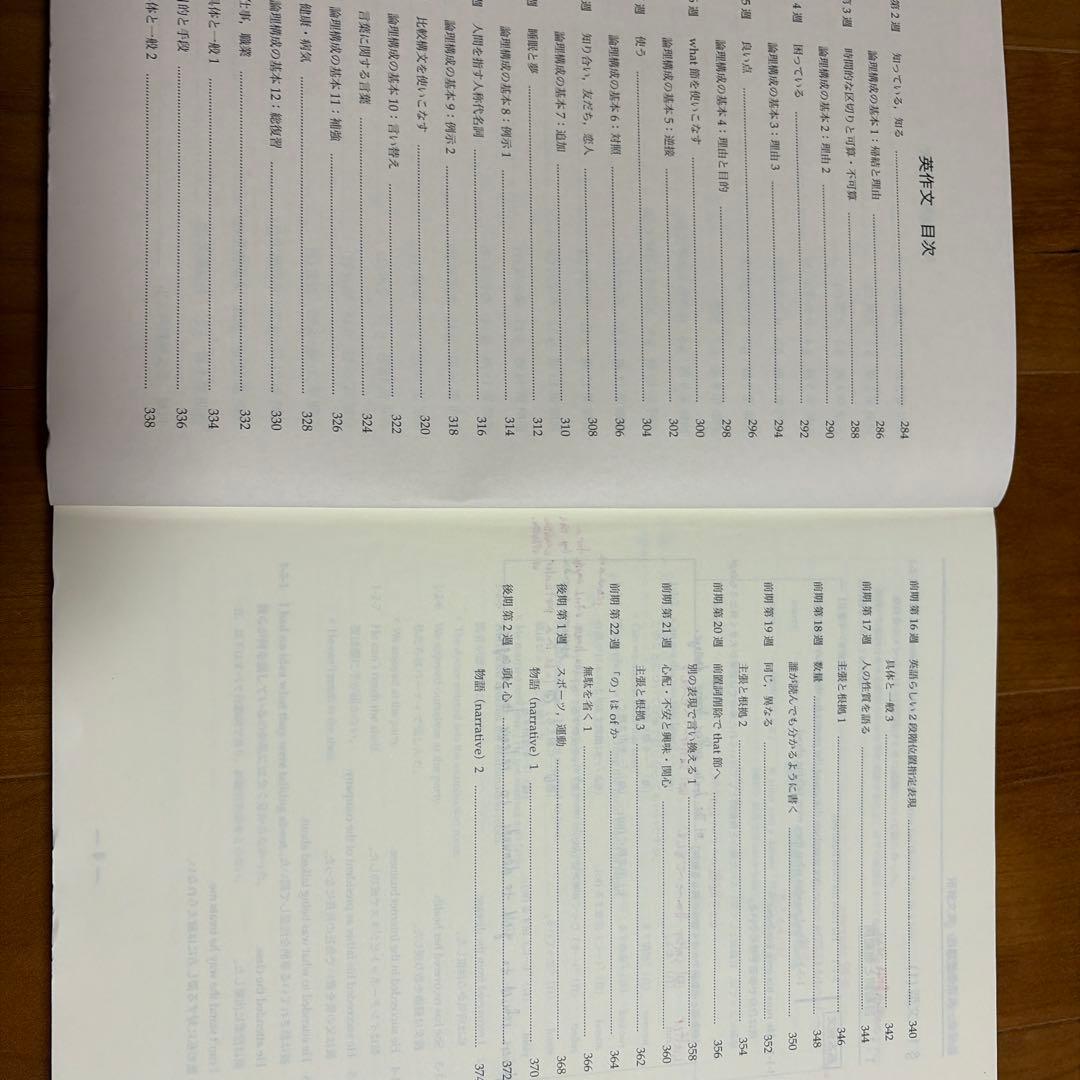 英作文 目次
第2週 知っている，知る 284
論理構成の基本1：帰結と理由 286
第3週 時間的な区切りと可算・不可算 288
論理構成の基本2：理由2 290
4週 困っている 292
論理構成の基本3：理由3 294
5週 良い点 296
論理構成の基本4：理由と目的 298
週 what節を使いこなす 300
論理構成の基本5：逆接 302
週 使う 304
論理構成の基本6：対照 306
週 知り合い，友だち，恋人 308
論理構成の基本7：追加 310
週 睡眠と夢 312
論理構成の基本8：例示1 314
週 人間を指す人称代名詞 316
論理構成の基本9：例示2 318
比較構文を使いこなす 320
論理構成の基本10：言い替え 322
言葉に関する言葉 324
論理構成の基本11：補強 326
健康・病気 328
論理構成の基本12：総復習 330
仕事，職業 332
具体と一般1 334
目的と手段 336
体と一般2 338
前期 第16週 英語らしい2段階位置指定表現 340
具体と一般3 342
前期 第17週 人の性質を語る 344
主張と根拠1 346
前期 第18週 数量 348
誰が読んでも分かるように書く 350
前期 第19週 同じ，異なる 352
主張と根拠2 354
前期 第20週 前置詞削除でthat節へ 356
別の表現で言い換える1 358
前期 第21週 心配・不安と興味・関心 360
主張と根拠3 362
前期 第22週 「の」はofか 364
無駄を省く1 366
後期 第1週 スポーツ，運動 368
物語（narrative）1 370
後期 第2週 頭と心 372
物語（narrative）2 374